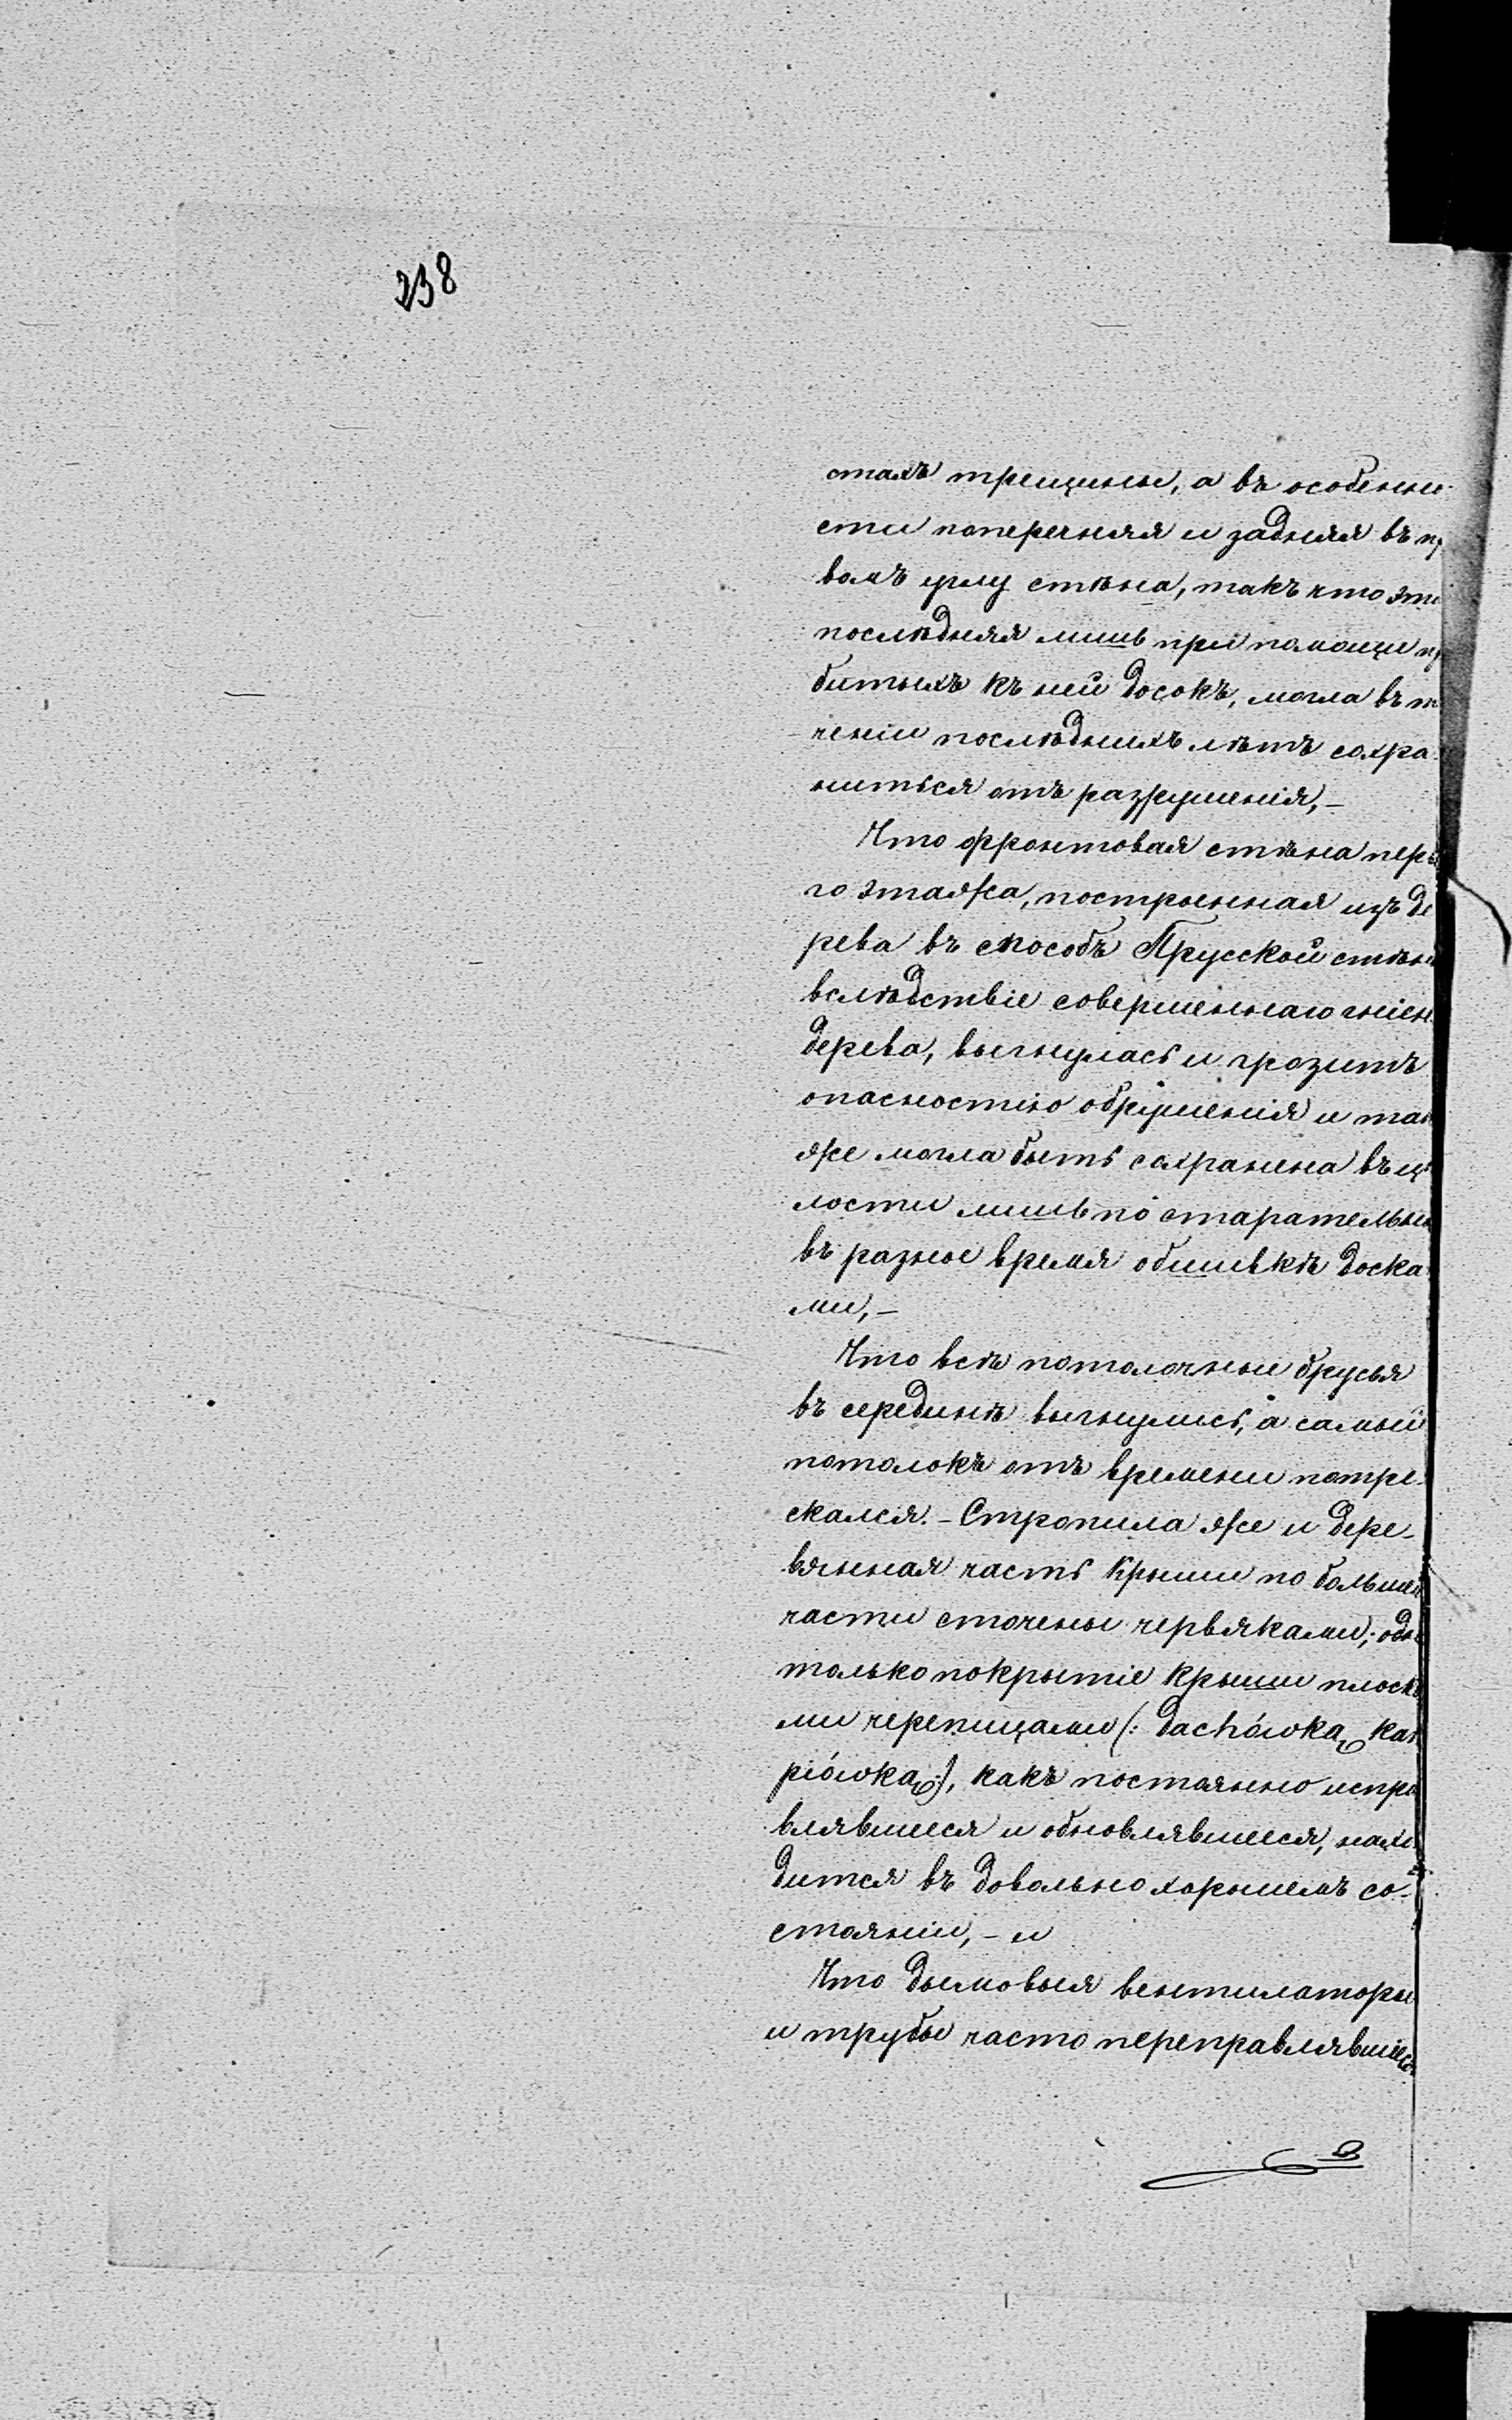 238
стахъ трещины, а въ особенно-
сти поперечная и задняя въ пр
вомъ углу стѣна, такъ что эта
послѣдняя лишь при помощи пр
битыхъ къ ней досокъ, могла въ те
ченіи послѣднихъ лѣтъ сохра-
ниться отъ разрушенія,—
Что фронтовая стѣна перв
го этажа, построенная изъ де
рева въ способъ Прусской стѣны
вслѣдствіе совершеннаго гніен
дерева, выгнулась и грозитъ
опасностію обрушенія и так
же могла быть сохранена въ цѣ
лости лишь по старательно
въ разное время обшивкѣ доска
ми,—
Что всѣ потолочные брусья
въ срединѣ выгнулись, а самый
потолокъ отъ времени потре-
скался.— Стропила же и дере-
вянная часть крыши по большей
части сточены червяками; одн
только покрытіе крыши плоск
ми черепицами (: dachówką kar
piówką:), какъ постоянно испра
влявшееся и обновлявшееся, нахо
дится въ довольно хорошемъ со-
стояніи,— и
Что дымовыя вентилаторы
и трубы часто переправлявшіеся